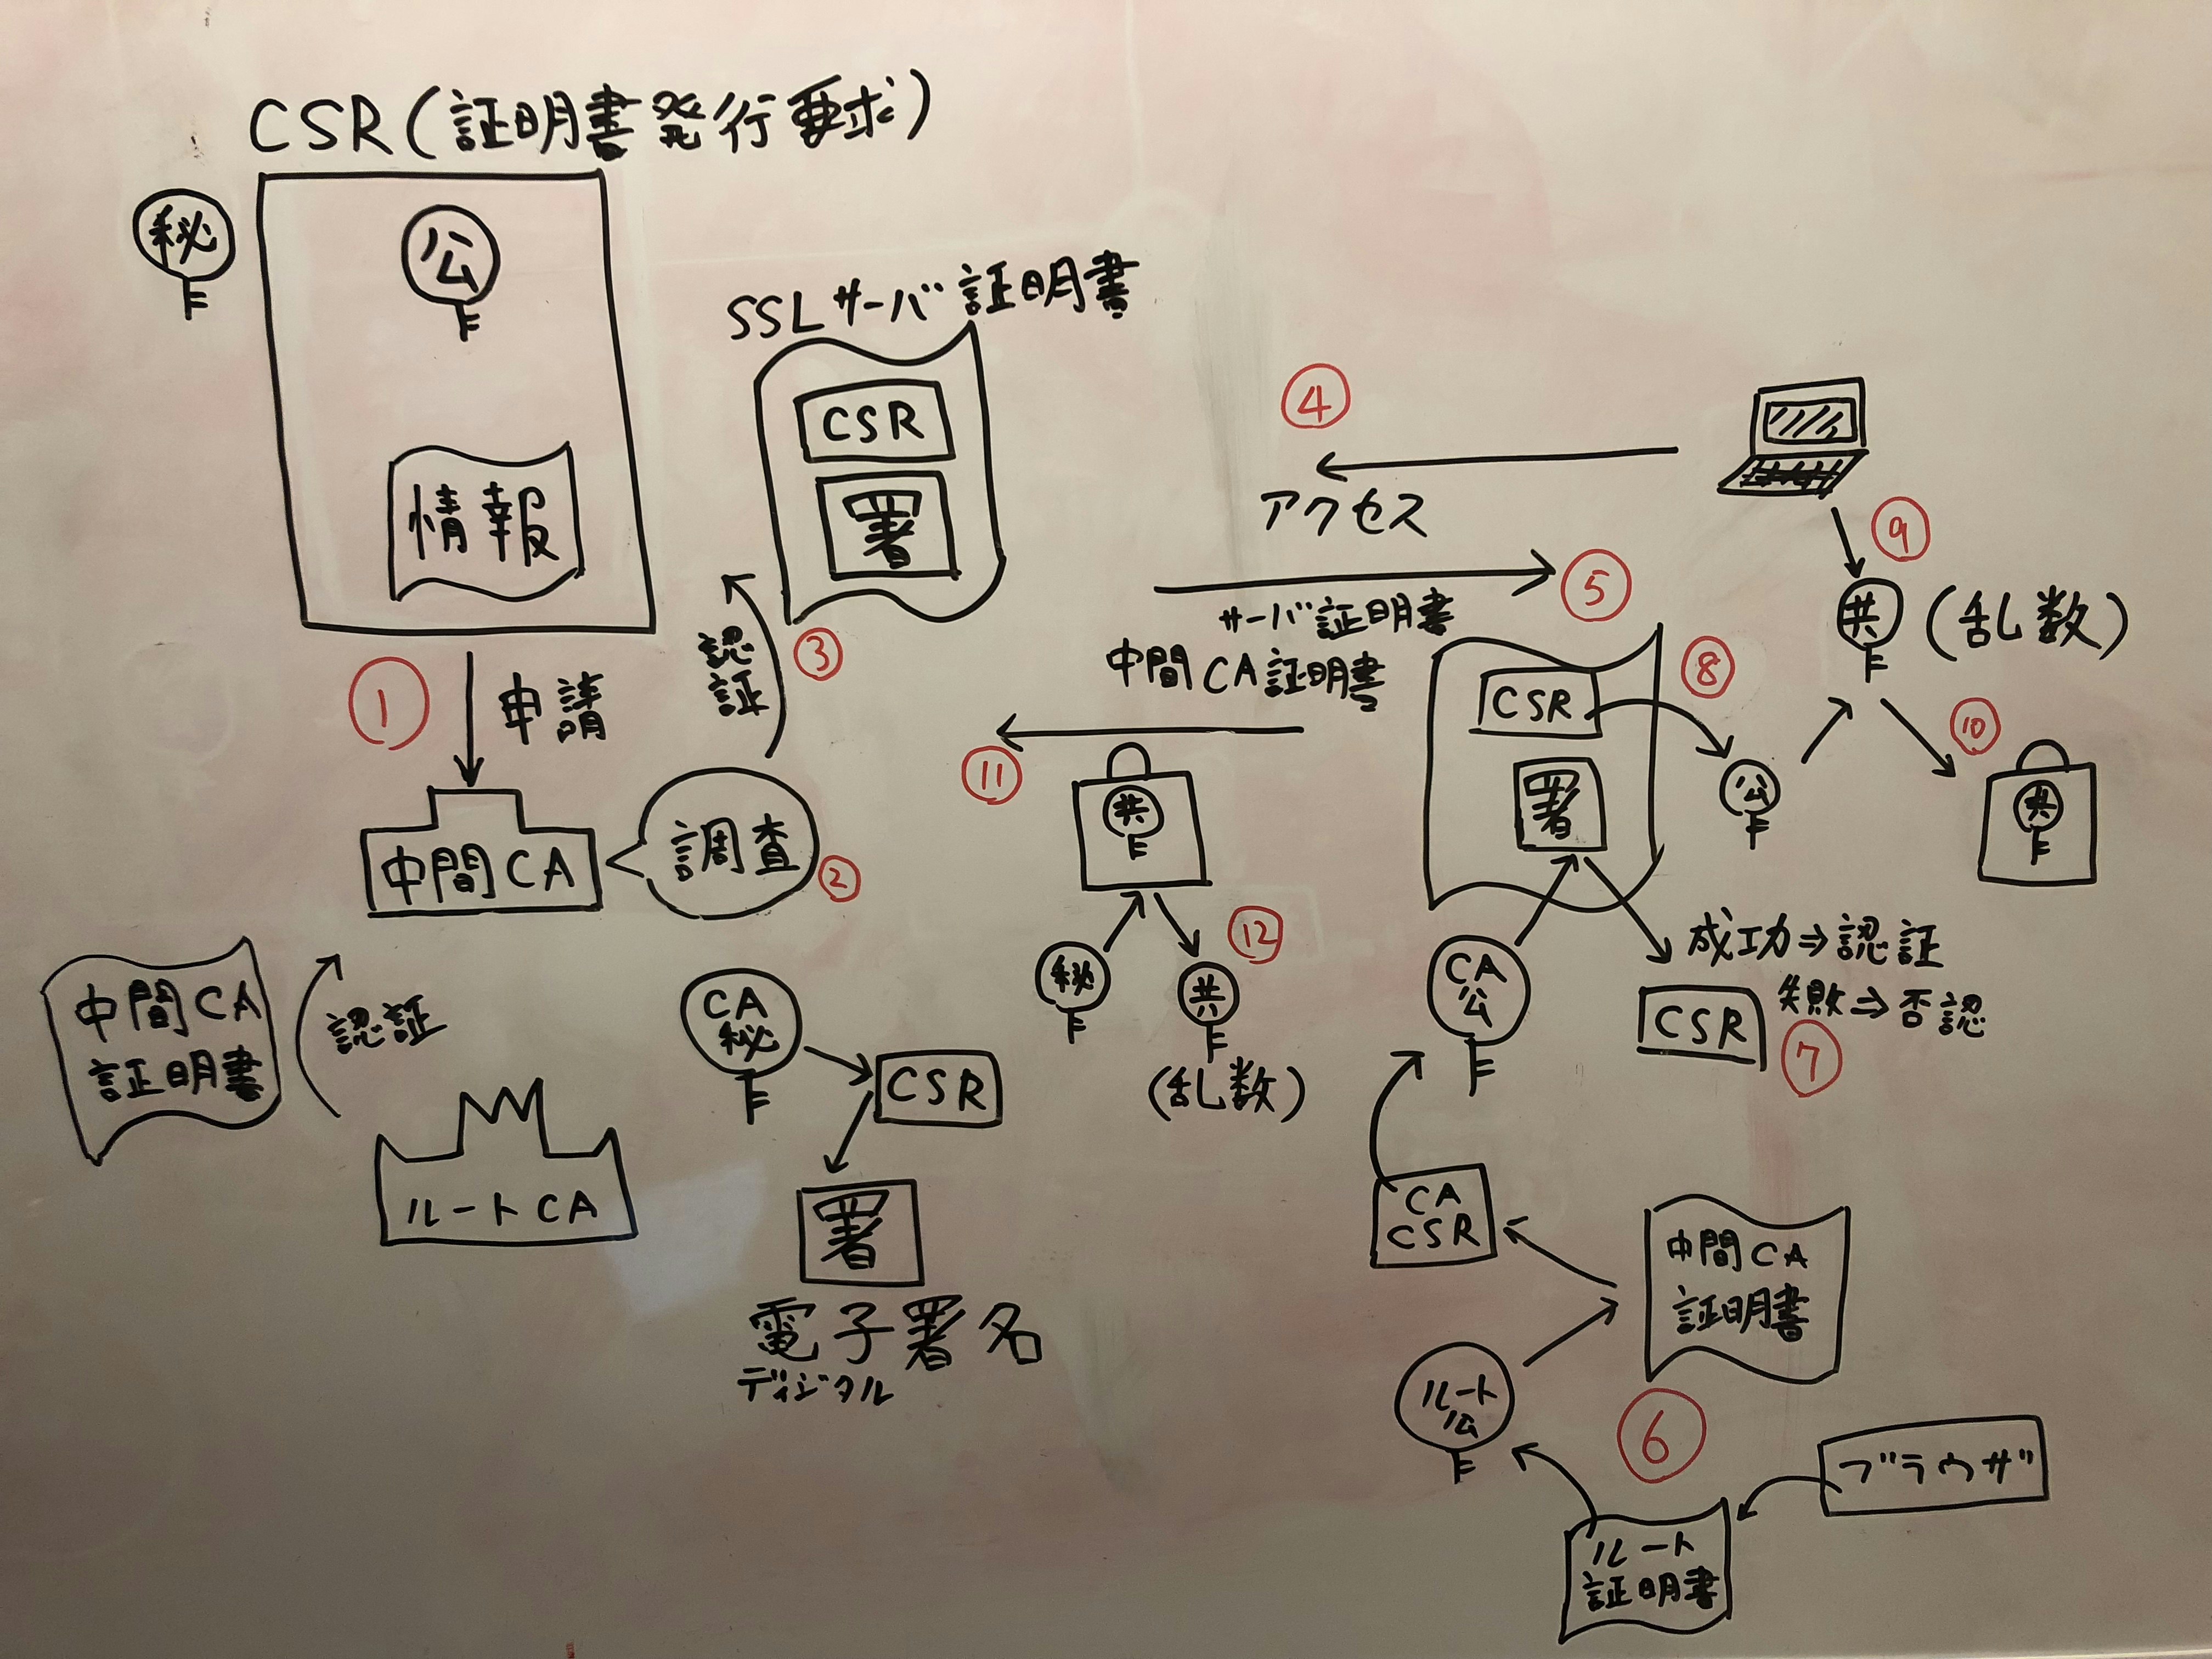 CSR(証明書発行要求)
秘
公
情報
① 申請
中間CA
調査 ②
認証 ③
SSLサーバ証明書
CSR
署
中間CA
証明書
認証
ルートCA
CA
秘
CSR
署
電子署名
ディジタル
④
アクセス
⑤
サーバ証明書
中間CA証明書
CSR
署
⑥
ブラウザ
ルート
証明書
ルート
公
中間CA
証明書
CA
CSR
CA
公
成功⇒認証
失敗⇒否認
CSR
⑦
⑧
公
⑨
共 (乱数)
⑩
共
⑪
共
秘
⑫
共
(乱数)